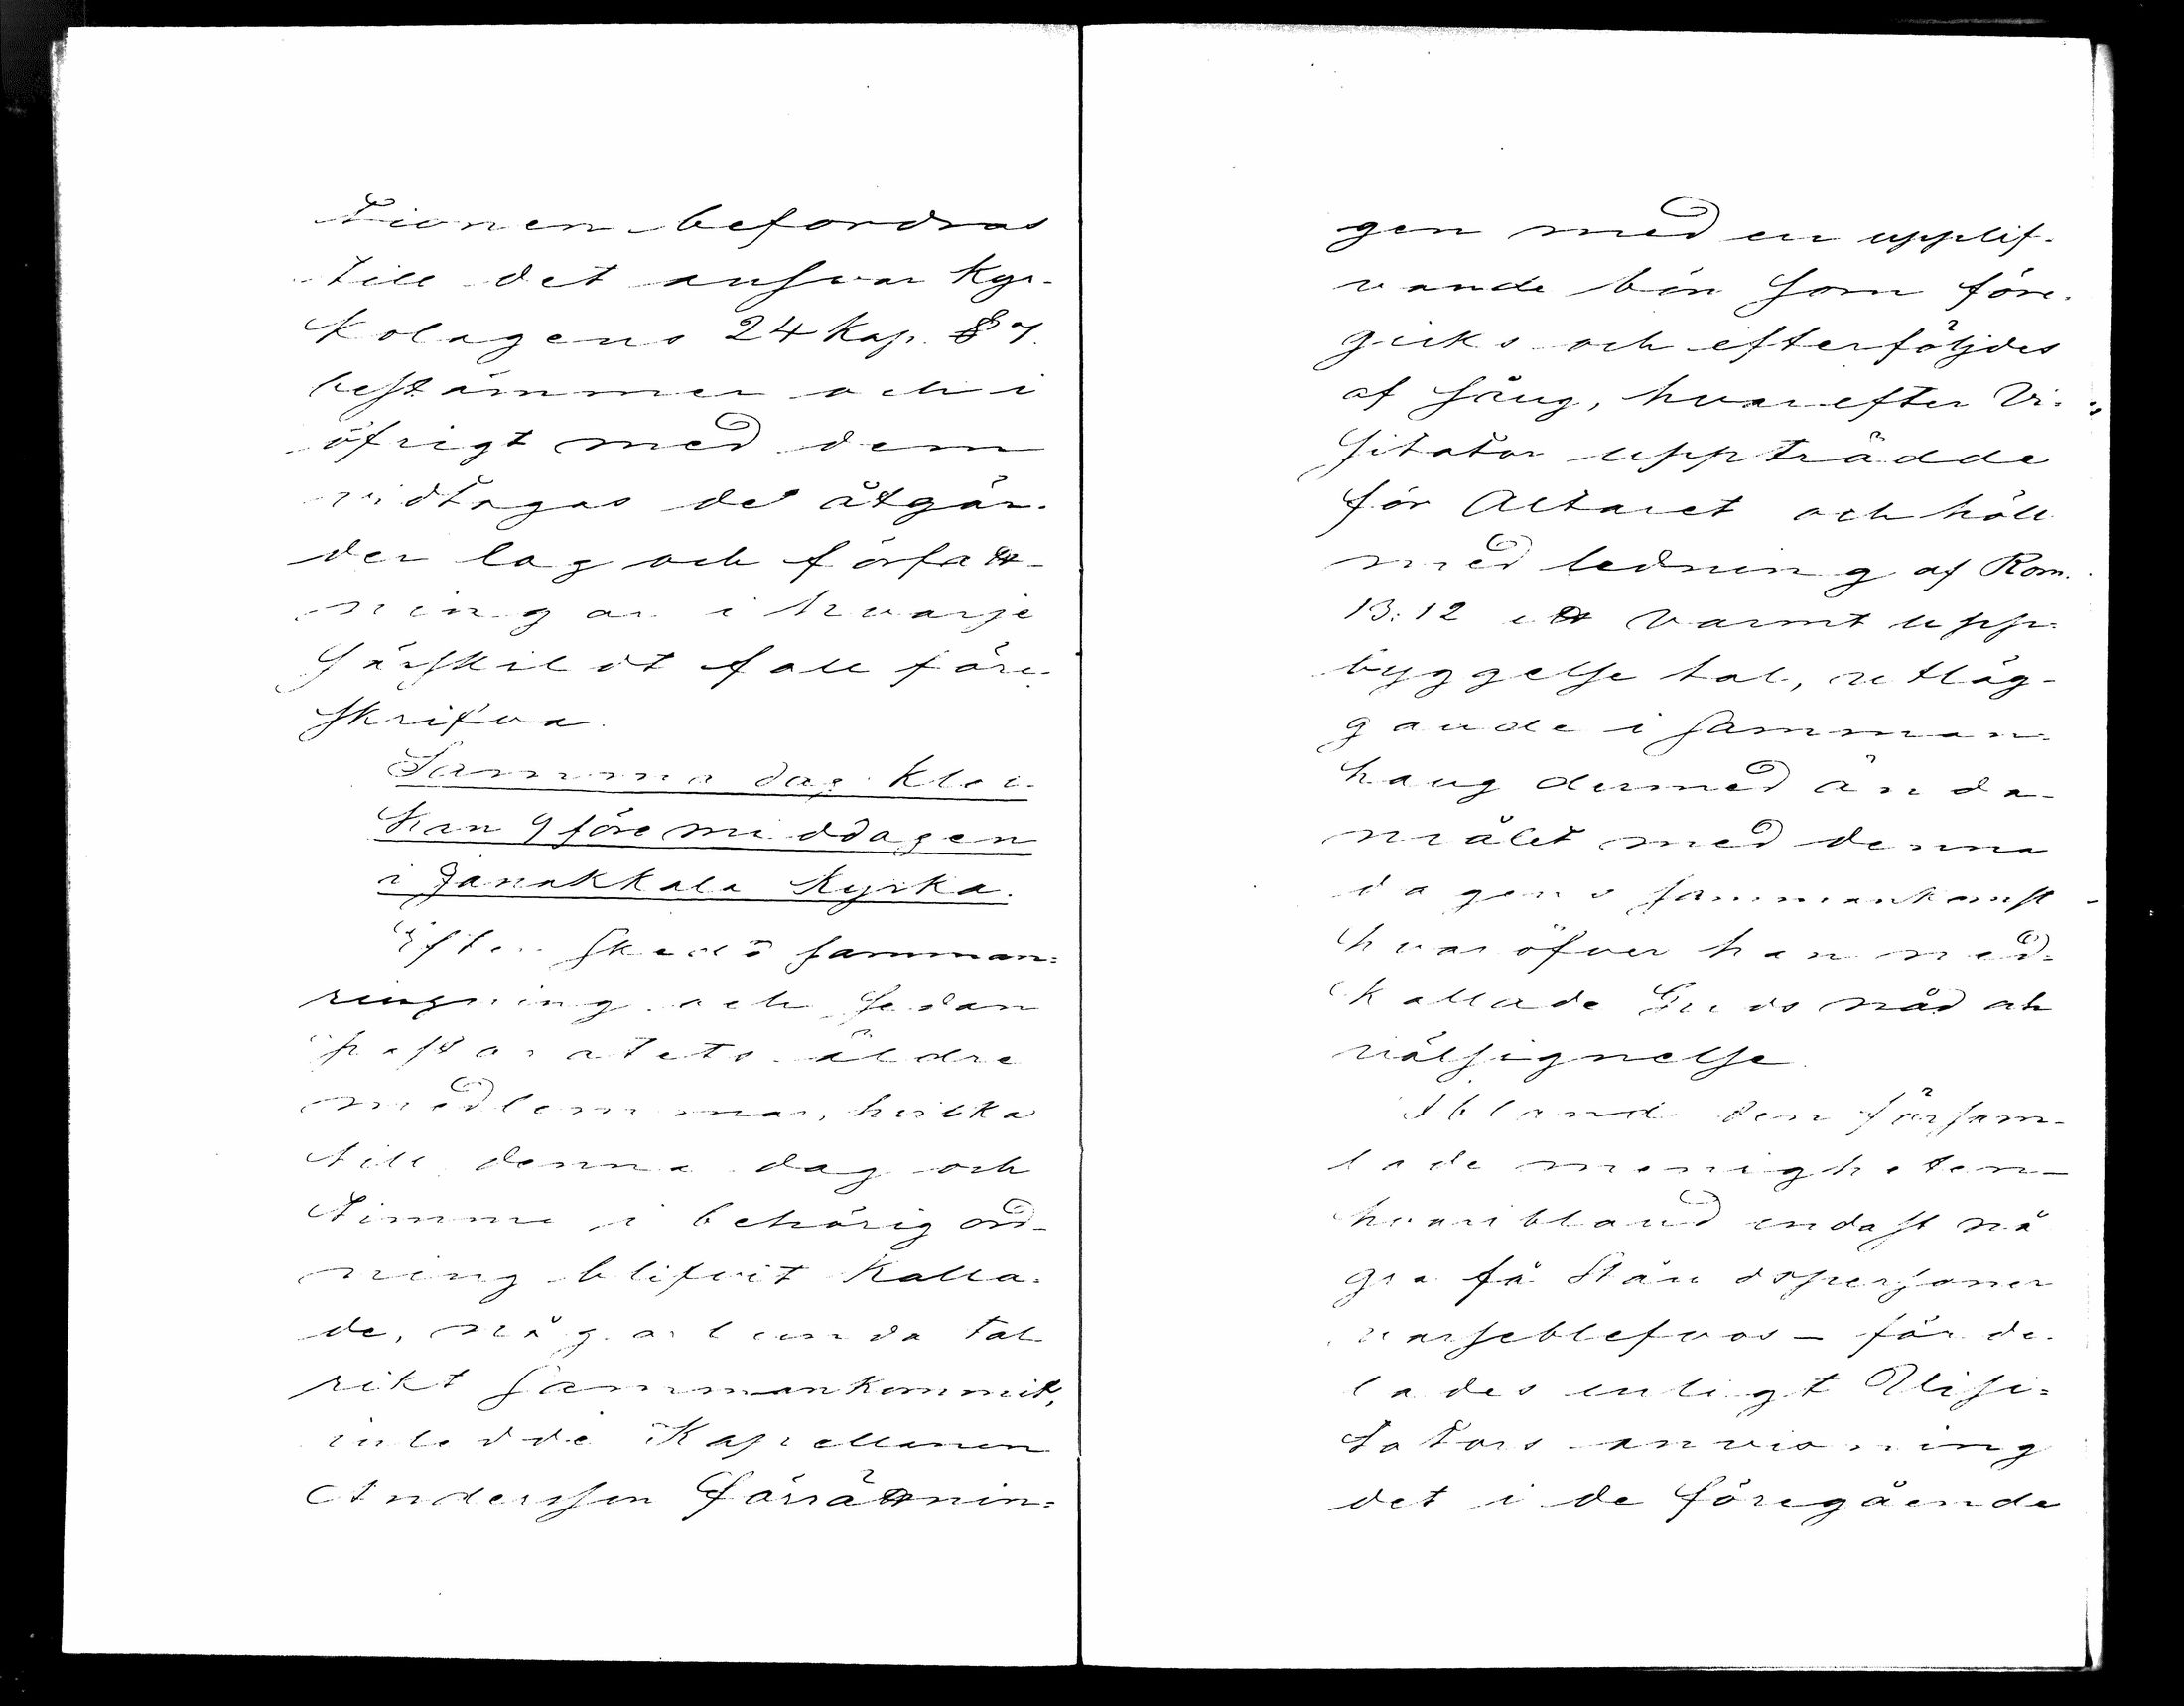 tionen befordras
till det ansvar Kyr-
kolagens 24 Kap. § 7.
bestämmer och i
öfrigt med dem
vidtagas de åtgär-
der lag och författ-
ningar i hvarje
särskildt fall före-
skrifva.
Samma dag kloc-
kan 9 före middagen
i Janakkala Kyrka.
Efter skedd samman-
ringning och sedan
pastoratets äldre
medlemmar, hvilka
till denna dag och
timme i behörig ord-
ning blifvit kalla-
de, någorlunda tal
rikt sammankommit,
inledde Kapellanen
Andersson förrättnin-
gen med en upplif-
vande bön som före-
gicks och efterföljdes
af sång, hvarefter Vi-
sitator uppträdde
för Altaret och höll
med ledning af Rom.
13:12 ett varmt upp-
byggelse tal, utläg-
gande i samman-
hang dermed ända-
målet med denna
dagens sammankomst -
hvaröfver han ned-
kallade Guds nåd och
välsignelse.
Ibland den försam-
lade menigheten -
hvaribland endast nå
gra få Ståndspersoner
varseblefvos - förde-
lades enligt Visi-
tators anvisning
det i de föregående